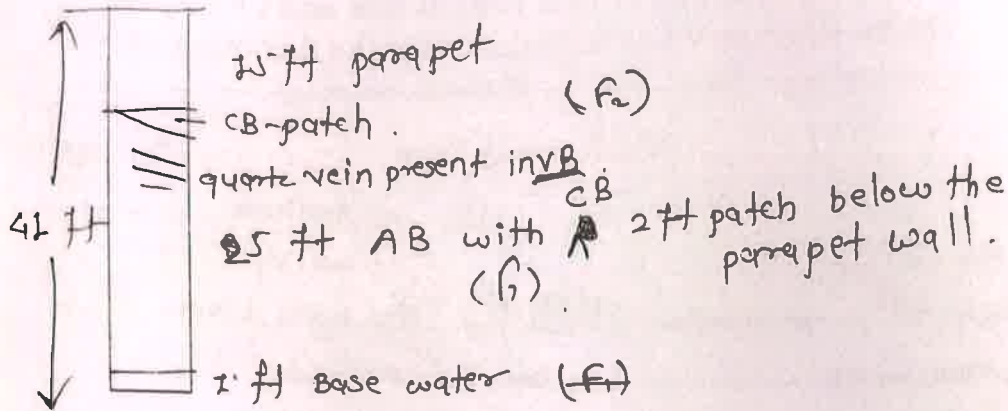 15 ft parapet
(F2)
CB-patch.
quartz vein present in VB
CB
41 ft
25 ft AB with ↑ 2 ft patch below the
parapet wall.
1 ft Base water